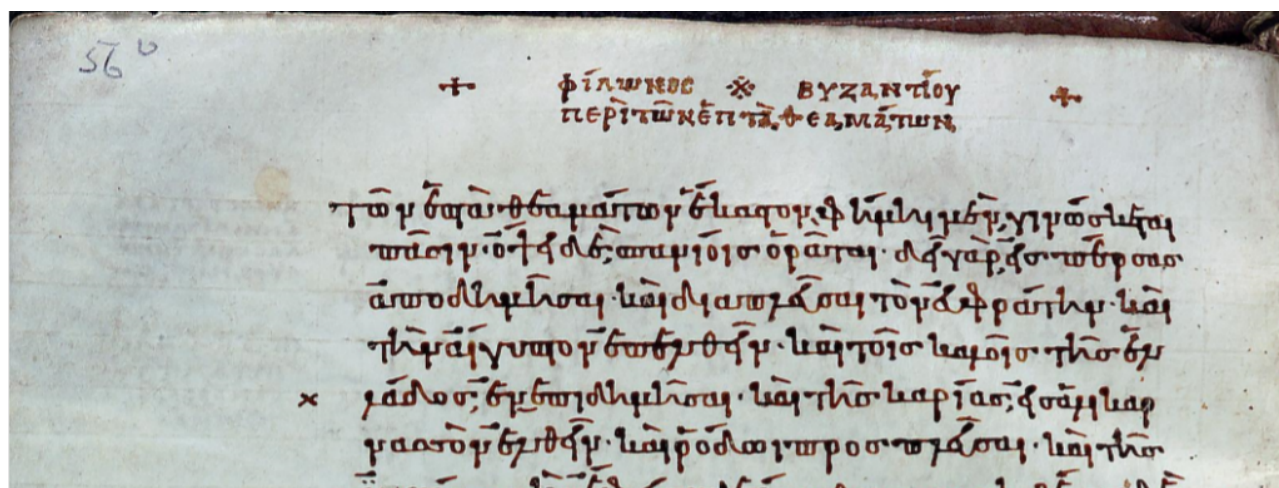 56 v
+ ΦΙΛΩΝΟΣ ※ ΒΥΖΑΝΤΙΟΥ +
ΠΕΡΙ ΤΩΝ ΕΠΤΑ ΘΕΑΜΑΤΩΝ
Τῶν ἑπτὰ θεαμάτων ἕκαστον, φήμηι μὲν, γινώσκεται
πᾶσιν· ὄψει δὲ, σπανίοις ὁρᾶται· δεῖ γὰρ, εἰς πέρσας
ἀποδημῆσαι· καὶ διαπλεῦσαι τὸν εὐφράτην· καὶ
τὴν αἴγυπτον ἐπελθεῖν· καὶ τοῖς τῆς ἑλ
× λάδος, ἐνεπιδημῆσαι· καὶ τῆς καρίας, εἰς ἁλικαρ
νασσὸν ἐλθεῖν· καὶ ῥόδωι προσπλεῦσαι· καὶ τῆς